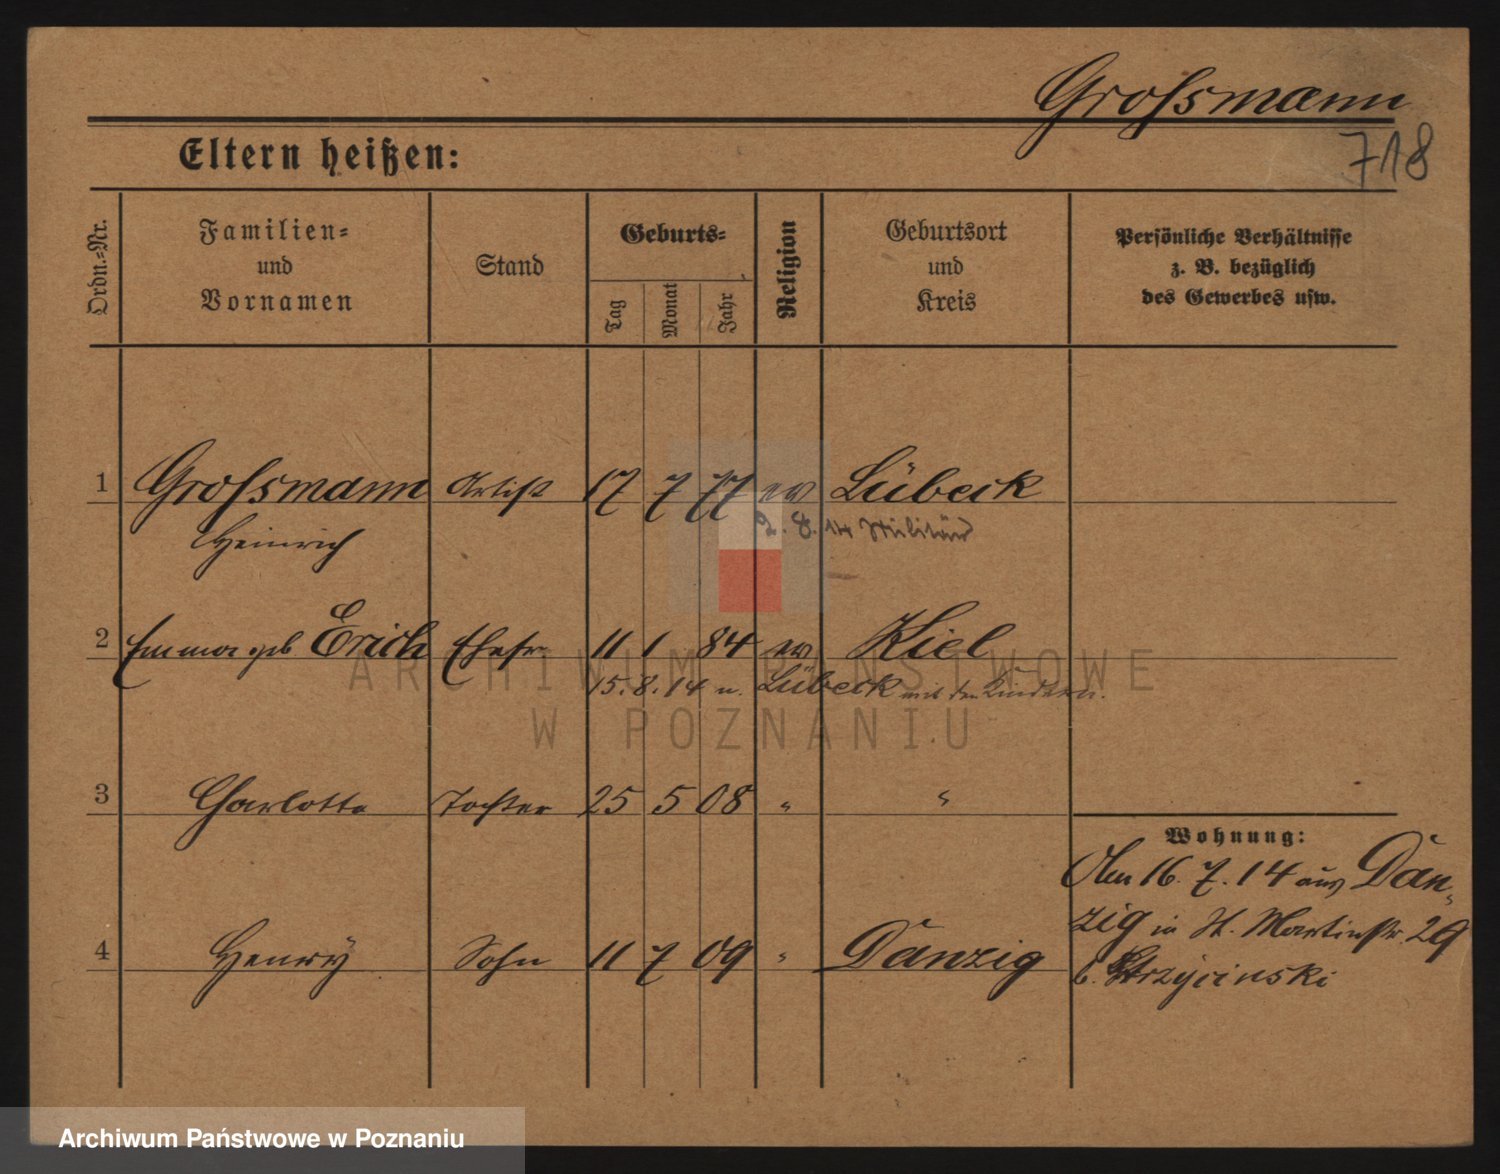 Großmann
718
Eltern heißen:
Ordn.-Nr.
Familien-
und
Vornamen
Stand
Geburts-
Tag
Monat
Jahr
Religion
Geburtsort
und
Kreis
Persönliche Verhältnisse
z. B. bezüglich
des Gewerbes usw.
1 Großmann Artist 17 7 77 ev Lübeck
Heinrich
2. 8. 14 Militär
2 Emma geb Erich Ehefr 11 1 84 ev Kiel
15. 8. 14 n. Lübeck mit den Kindern.
3 Charlotte Tochter 25 5 08 " "
4 Henry Sohn 11 7 09 " Danzig
Wohnung:
Am 16. 7. 14 aus Dan-
zig in St. Martinstr. 29
b.
ARCHIWUM PAŃSTWOWE
W POZNANIU
Archiwum Państwowe w Poznaniu